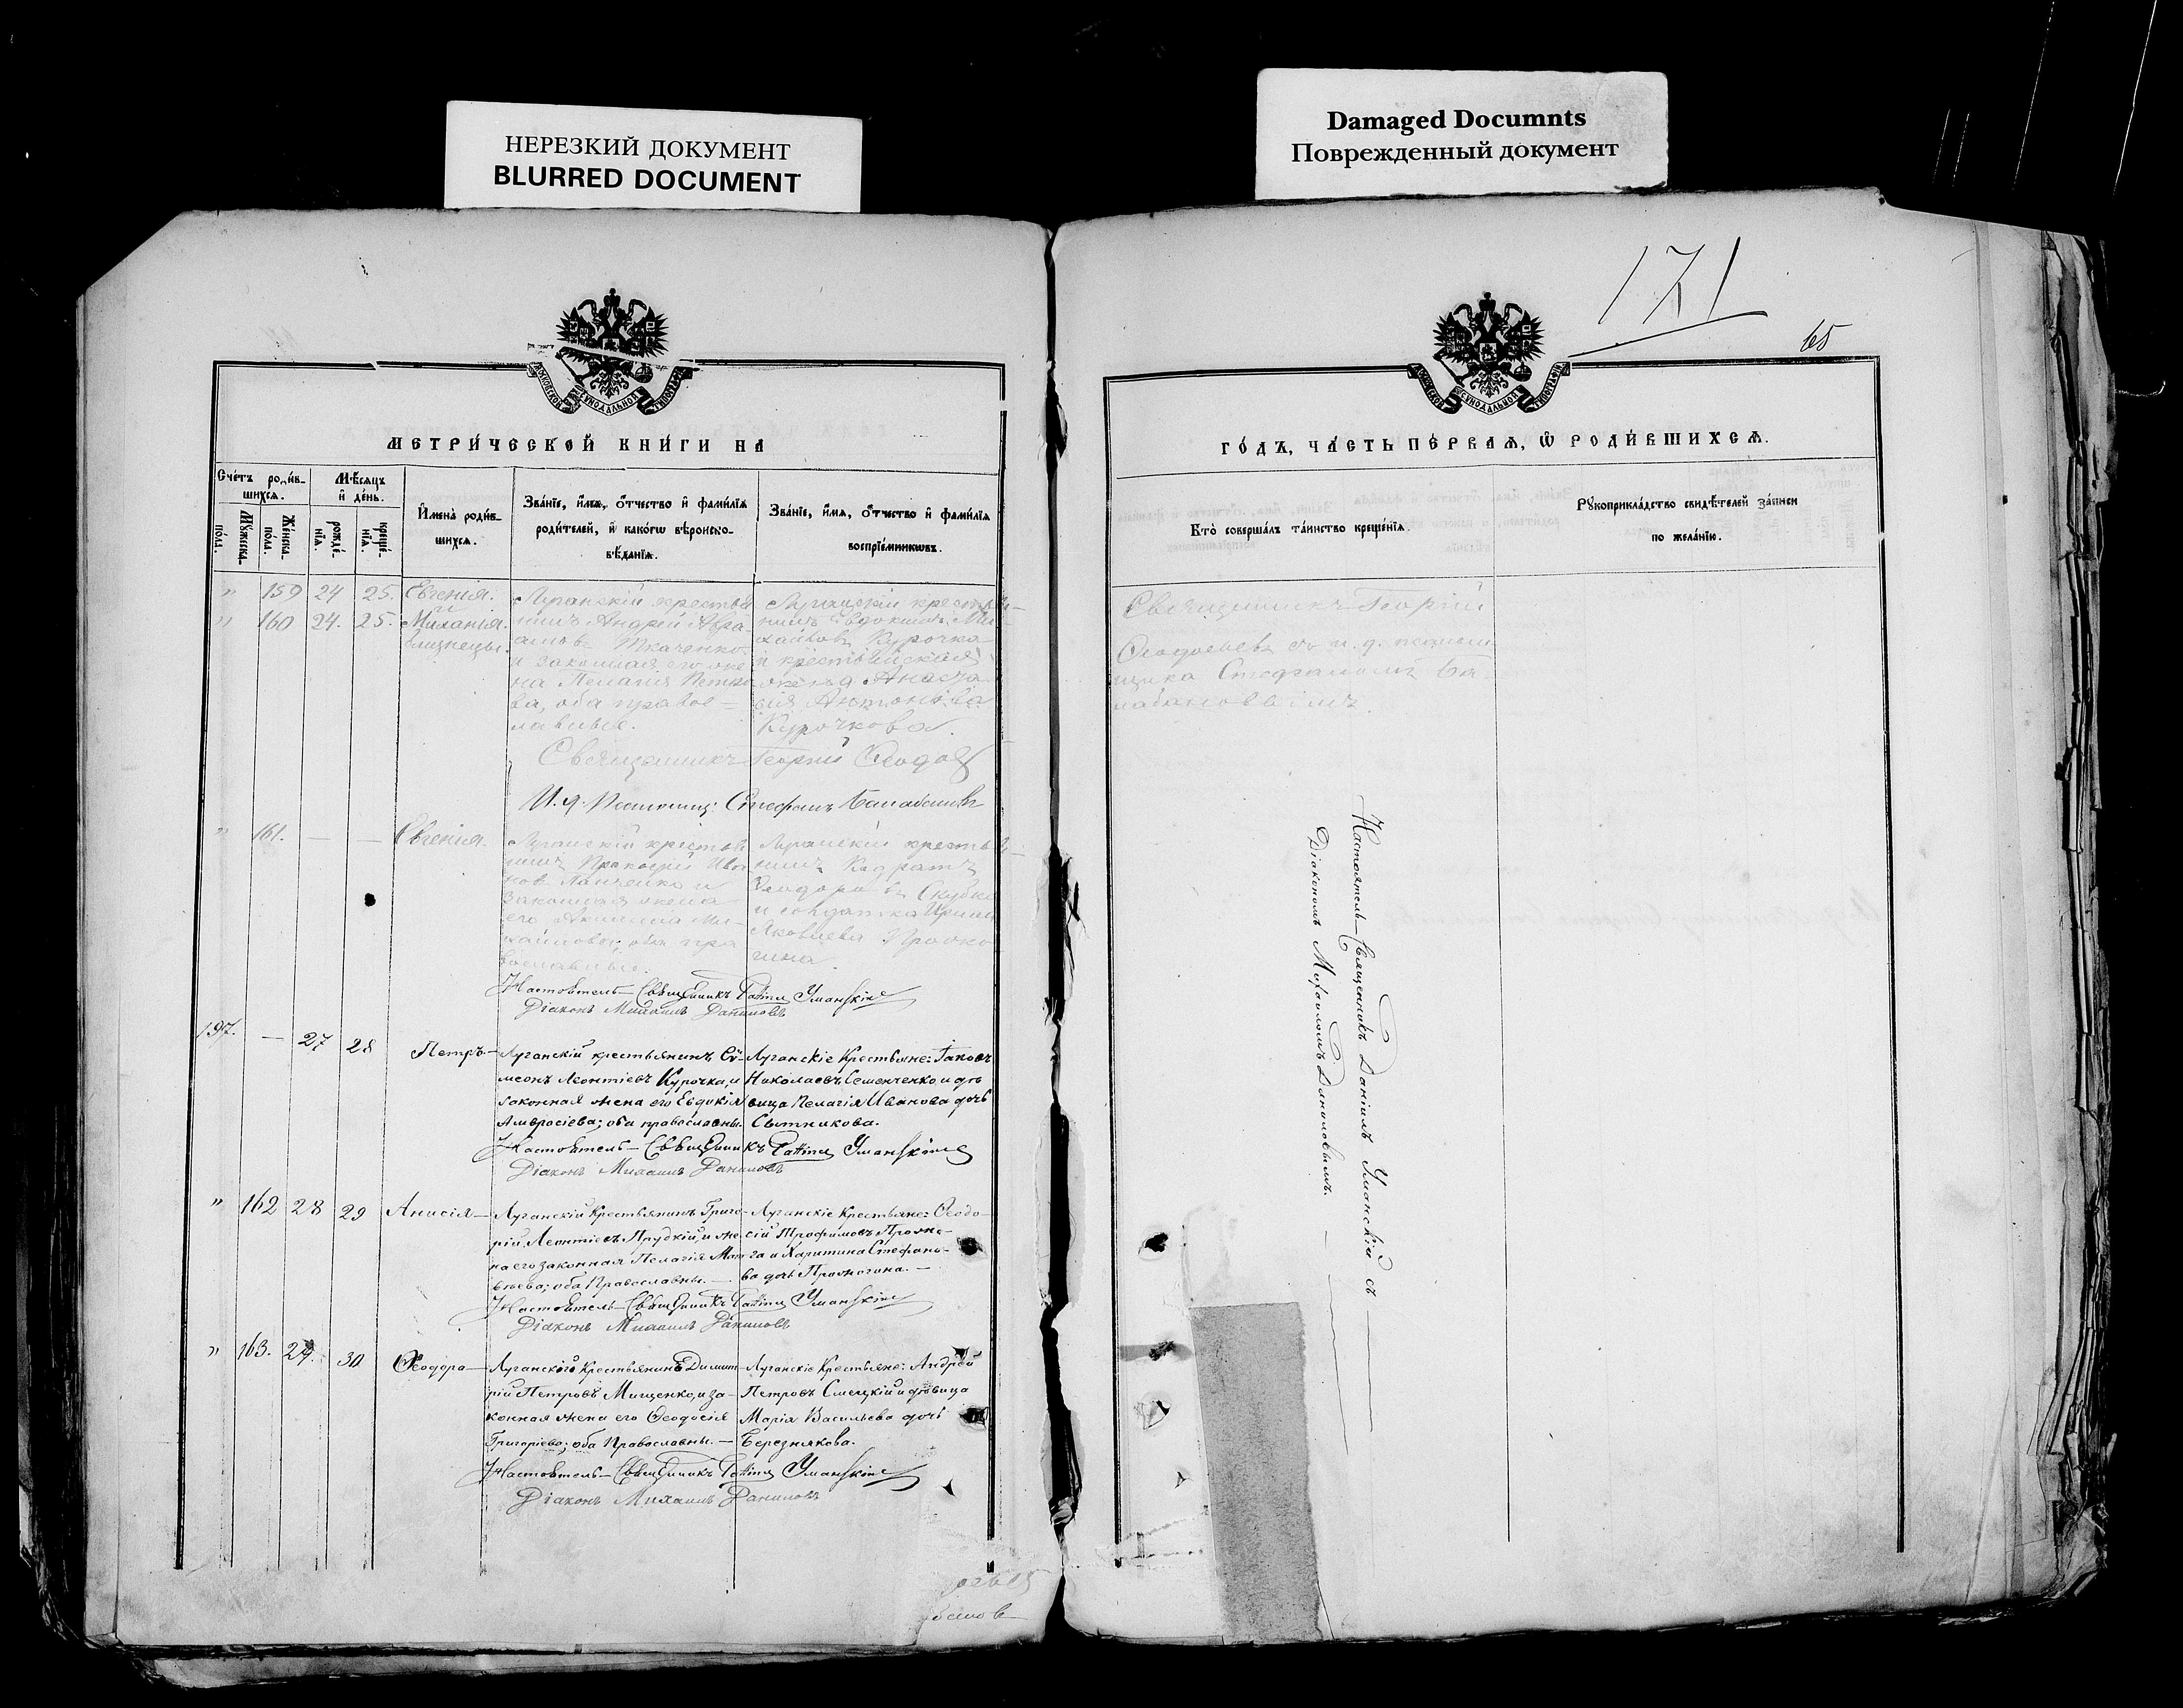 НЕРЕЗКИЙ ДОКУМЕНТ
BLURRED DOCUMENT
Damaged Documnts
Поврежденный документ
171
65
МОСКОВСКОЙ СУНОДАЛЬНОЙ ТИПОГРАФІИ
МЕТРИ́ЧЕСКОЙ КНИ́ГИ НА
Сче́тъ роди́в-
шихсѧ.
Мѣ́сѧцъ
и҆ де́нь.
Мꙋ́жеска
по́ла.
Же́нска
по́ла.
рожде́-
нїѧ.
креще́-
нїѧ.
И҆мена̀ роди́в-
шихсѧ.
Зва́нїе, и҆́мѧ, ѻ҆́тчество и҆ фами́лїѧ
роди́телей, и҆ како́гѡ вѣроиспо-
вѣ́данїѧ.
Зва́нїе, и҆́мѧ, ѻ҆́тчество и҆ фами́лїѧ
воспрїе́мникѡвъ.
" 159 24 25. Евгенія.
и
" 160 24. 25. Миханія.
близнецы.
Луганскій крестья
нинъ Андрей Авра
амовъ Ткаченко
и законная его же
на Пелагія Петро
ва, оба правос=
лавные.
Луганскій крестья-
нинъ Евдокимъ Ми-
хайловъ Курочка
и крестьянская
жена Анаста
сія Антонова
Курочкова.
Священникъ Георгій
И. д. Псаломщ: Стефанъ Балабановъ
" 161. — — Евгенія.
Луганскій крестья
нинъ Прокопій Ива
новъ Панченко и
законная жена
его Акилина Ми-
хайлова; оба пра
вославные.
Луганскій крестья-
нинъ Кодратъ
Ѳеодоровъ Скубко
и солдатка Ирина
Яковлева Прожо-
гина.
Настоятель-Священникъ Даніилъ Уманскій
Діаконъ Михаилъ Даниловъ
197. — 27 28 Петръ—
Луганскій крестьянинъ Си-
меонъ Леонтіевъ Курочка, и
законная жена его Евдокія
Амвросіева; оба православны.
Луганскіе Крестьяне: Іаковъ
Николаевъ Семенченко и дѣ
вица Пелагія Иванова дочь
Сытникова.
Настоятель-Священникъ Даніилъ Уманскій
Діаконъ Михаилъ Даниловъ
" 162 28 29 Анисія—
Луганскій Крестьянинъ Григо-
рій Леонтіевъ Прудкій, и же
на его законная Пелагія Мат
вѣева; оба Православны. —
Луганскіе Крестьяне: Ѳеодо-
сій Трофимовъ Прожо-
га и Харитина Стефано-
ва дочь Прожогина. —
Настоятель-Священникъ Даніилъ Уманскій
Діаконъ Михаилъ Даниловъ
" 163. 29. 30 Ѳеодора—
Луганскій Крестьянинъ Димит-
рій Петровъ Мищенко, и за-
конная жена его Ѳеодосія
Григоріева; оба Православны. —
Луганскіе Крестьяне: Андрей
Петровъ Смецкій и дѣвица
Марія Васильева дочь
Березнякова.
Настоятель-Священникъ Даніилъ Уманскій
Діаконъ Михаилъ Даниловъ
МОСКОВСКОЙ СУНОДАЛЬНОЙ ТИПОГРАФІИ
ГО́ДЪ, ЧА́СТЬ ПЕ́РВАѦ, Ѡ҆ РОДИ́ВШИХСѦ.
Кто̀ соверша́лъ та́инство креще́нїѧ.
Рꙋкоприкла́дство свидѣ́телей за́писи
по жела́нїю.
Священникъ Георгій
Ѳеодосьевъ съ и. д. псалом
щика Стефаномъ Ба
лабановымъ.
Настоятель-Священникъ Даніилъ Уманскій съ
Діакономъ Михаиломъ Даниловымъ. —